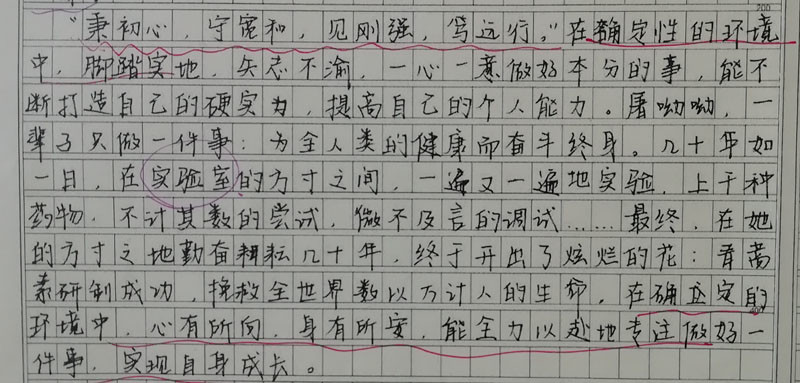 "秉初心，守宽和，见刚强，笃远行。"在确定性的环境
中，脚踏实地，矢志不渝，一心一意做好本分的事，能不
断打造自己的硬实力，提高自己的个人能力。屠呦呦，一
辈子只做一件事：为全人类的健康而奋斗终身。几十年如
一日，在实验室的方寸之间，一遍又一遍地实验，上千种
药物，不计其数的尝试，做不及言的调试……最终，在她
的方寸之地勤奋耕耘几十年，终于开出了炫烂的花：青蒿
素研制成功，挽救全世界数以万计人的生命，在确定的
环境中，心有所向，身有所安，能全力以赴地专注做好一
件事，实现自身成长。